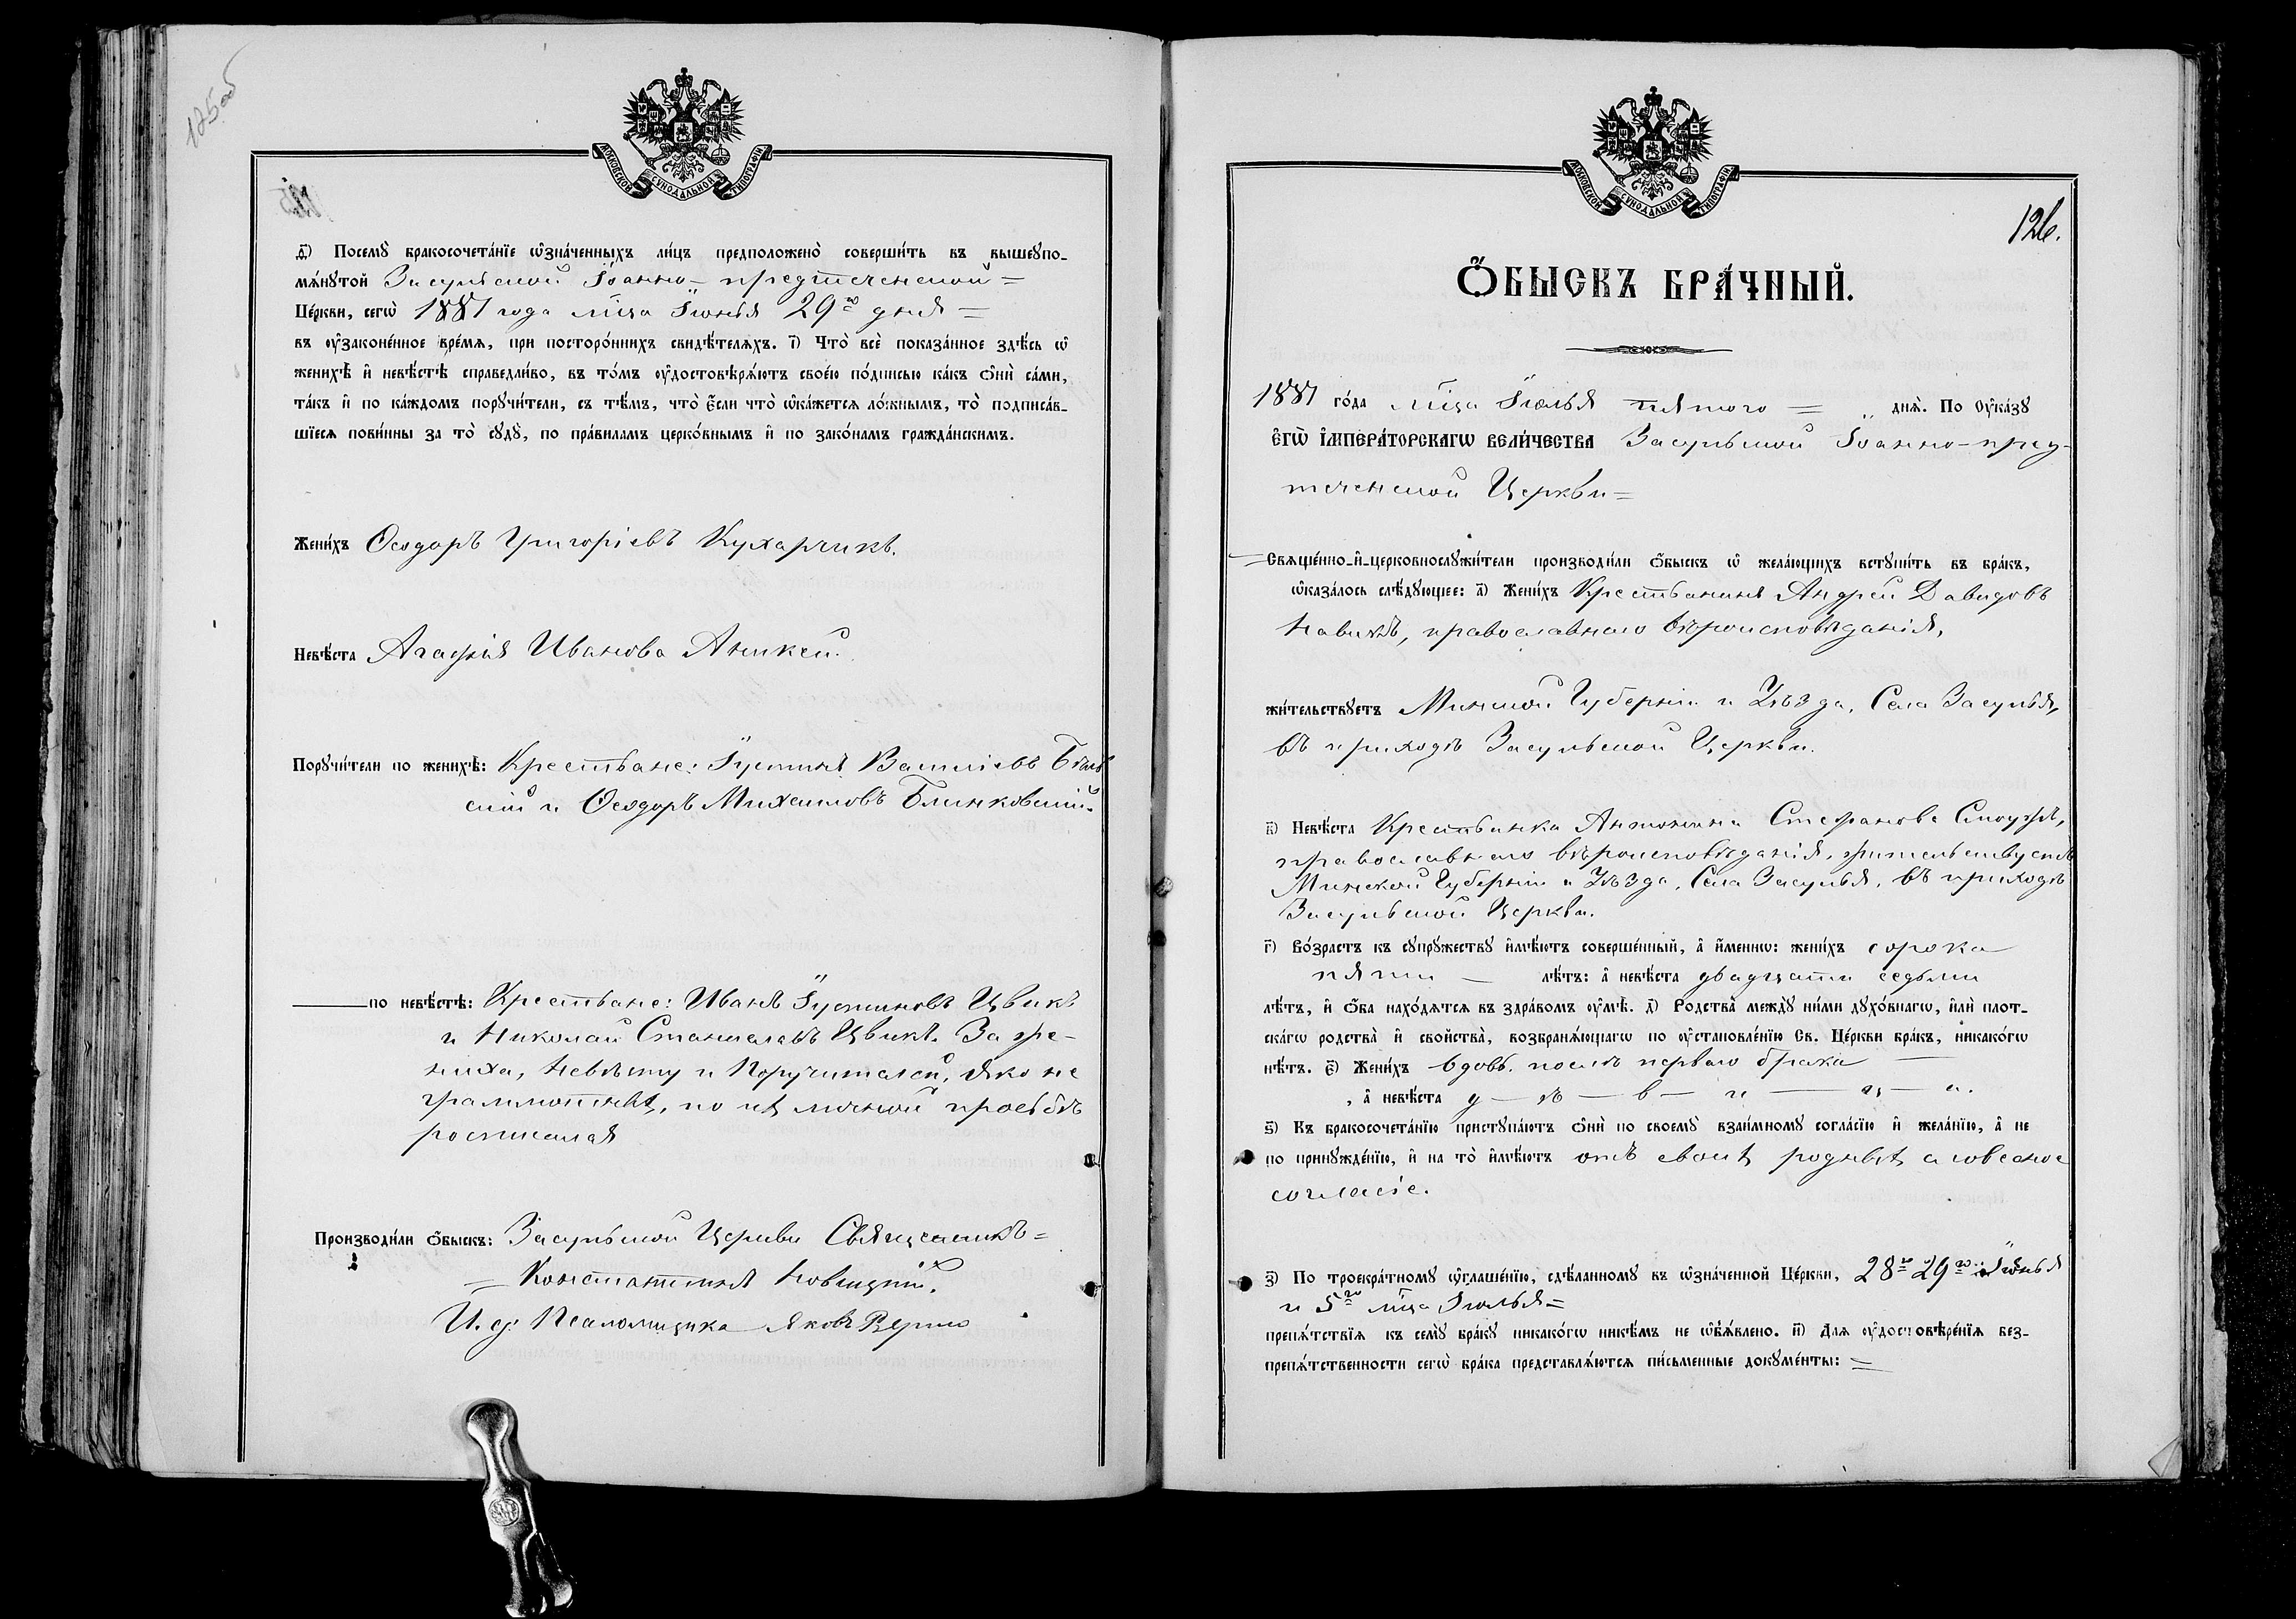 125об
МОСКОВСКОЙ СѴНОДАЛЬНОЙ ТИПОГРАФІИ
д҃і) Посемꙋ̀ бракосочета́нїе ѡ҆зна́ченныхъ ли́цъ предположено̀ соверши́ть въ вышеꙋпо-
мѧ́нꙋтой Засульской Іоанно-предтеченской =
Це́ркви, сегѡ̀ 1881 года м҃ца Іюнья 29го дня =
въ ᲂу҆законе́нное вре́мѧ, при посторо́ннихъ свидѣ́телѧхъ. і҃) Что̀ всѐ показа́нное здѣ́сь ѡ҆
женихѣ̀ и҆ невѣ́стѣ справедли́во, въ то́мъ ᲂу҆достовѣрѧ́ютъ свое́ю по́дписью ка́къ ѻ҆нѝ са́ми,
та́къ и҆ по ка́ждомъ порꙋчи́тели, съ тѣ́мъ, что̀ є҆́сли что̀ ѡ҆ка́жетсѧ ло́жнымъ, то̀ подписа́в-
шїесѧ пови́нны за то̀ сꙋдꙋ̀, по пра́виламъ церко́внымъ и҆ по зако́намъ гражда́нскимъ.
Жени́хъ Ѳеодоръ Григоріевъ Кухарчикъ.
Невѣ́ста Агафія Иванова Аникей.
Порꙋчи́тели по женихѣ̀: Крестьане: Іустинъ Василіевъ Бѣль
скій и Ѳеодоръ Михаиловъ Блинковскій.
по невѣ́стѣ: Крестьане: Иванъ Іустиновъ Цвикъ
и Николай Станиславъ Цвикъ. За же-
ниха, Невѣсту и Поручителей, яко не
грамотныхъ, по ихъ личной прозьбѣ
росписался
Производи́ли ѻ҆́быскъ: Засульской Церкви Священникъ =
= Константинъ Новицкій.
И. д. Псаломщика Яковъ
МОСКОВСКОЙ СѴНОДАЛЬНОЙ ТИПОГРАФІИ
126.
Ѻ҆́БЫСКЪ БРА́ЧНЫЙ.
1881 го́да м҃ца Іюлья пятого = „ днѧ̀. По ᲂу҆ка́зꙋ
Є҆ГѠ̀ И҆МПЕРА́ТОРСКАГѠ ВЕЛИ́ЧЕСТВА Засульской Іоанно-пред-
теченской Церкви =
Свѧще́нно-и҆-церковнослꙋжи́тели производи́ли ѻ҆́быскъ ѡ҆ жела́ющихъ встꙋпи́ть въ бра́къ,
ѡ҆каза́лось слѣ́дꙋющее: а҃) Жени́хъ Крестьанинъ Андрей Давидовъ
Навикъ, православнаго вѣроисповѣданія,
жи́тельствꙋетъ Минской Губерніи и Уѣзда, Села Засулья,
въ приходѣ Засульской Церкви.
в҃) Невѣ́ста Крестьанка Антонина Стефанова,
православнаго вѣроисповѣданія, жительствуетъ
Минской Губерніи и Уѣзда, Села Засулья, въ приходѣ
Засульской Церкви.
г҃) Во́зрастъ къ сꙋпрꙋ́жествꙋ и҆мѣ́ютъ соверше́нный, а҆ и҆́меннѡ: жени́хъ сорока
пяти — лѣ́тъ: а҆ невѣ́ста двадцати седьми
лѣ́тъ, и҆ ѻ҆́ба нахо́дѧтсѧ въ здра́вомъ ᲂу҆мѣ̀. д҃) Родства̀ междꙋ̀ ни́ми дꙋхо́внагѡ, и҆лѝ плот-
ска́гѡ родства̀ и҆ свойства̀, возбранѧ́ющагѡ по ᲂу҆становле́нїю Св. Це́ркви бра́къ, никако́гѡ
нѣ́тъ. є҃) Жени́хъ вдовъ. послѣ перваго брака —
, а҆ невѣ́ста д — ѣ — в — и — ц — а.
ѕ҃) Къ бракосочета́нїю пристꙋпа́ютъ ѻ҆нѝ по своемꙋ̀ взаи́мномꙋ согла́сїю и҆ жела́нїю, а҆ не
по принꙋжде́нїю, и҆ на то̀ и҆мѣ́ютъ отъ своихъ родныхъ словесное
согласіе.
з҃) По троекра́тномꙋ ѡ҆глаше́нїю, сдѣ́ланномꙋ въ ѡ҆зна́ченной Це́ркви, 28го 29го Іюнья
и 5го м҃ца Іюлья =
препѧ́тствїѧ къ семꙋ̀ бра́кꙋ никако́гѡ никѣ́мъ не ѡ҆б̾ѧ́влено. и҃) Для ᲂу҆достовѣре́нїѧ без-
препѧ́тственности сегѡ̀ бра́ка представлѧ́ютсѧ пи́сьменные докꙋме́нты: =